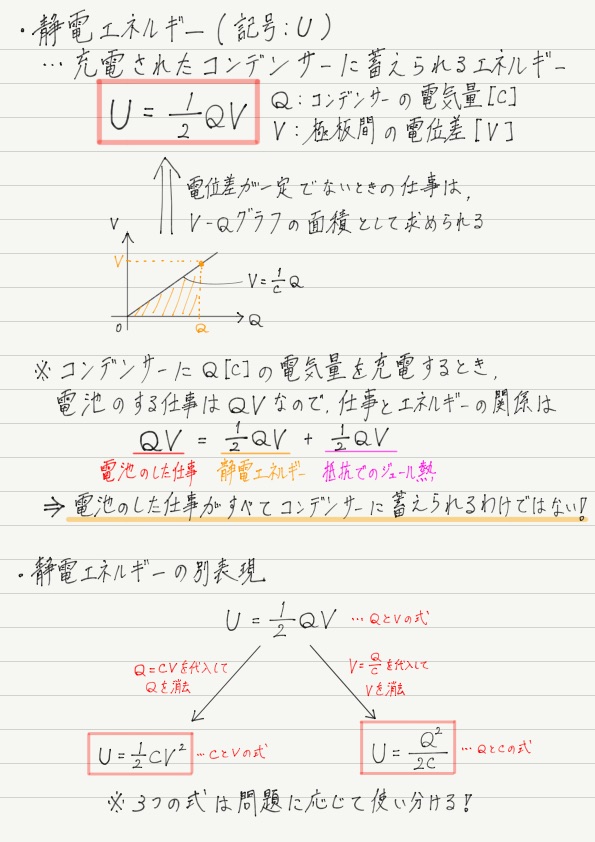 ・静電エネルギー(記号:U)
…充電されたコンデンサーに蓄えられるエネルギー
U = 1/2 QV
Q:コンデンサーの電気量[C]
V:極板間の電位差[V]
電位差が一定でないときの仕事は,
V-Qグラフの面積として求められる
V
V
V = 1/C Q
O
Q
Q
※コンデンサーにQ[C]の電気量を充電するとき,
電池のする仕事はQVなので,仕事とエネルギーの関係は
QV = 1/2 QV + 1/2 QV
電池のした仕事 静電エネルギー 抵抗でのジュール熱
⇒ 電池のした仕事がすべてコンデンサーに蓄えられるわけではない!
・静電エネルギーの別表現
U = 1/2 QV …QとVの式
Q=CVを代入して
Qを消去
V=Q/Cを代入して
Vを消去
U = 1/2 CV² …CとVの式
U = Q²/2C …QとCの式
※3つの式は問題に応じて使い分ける!